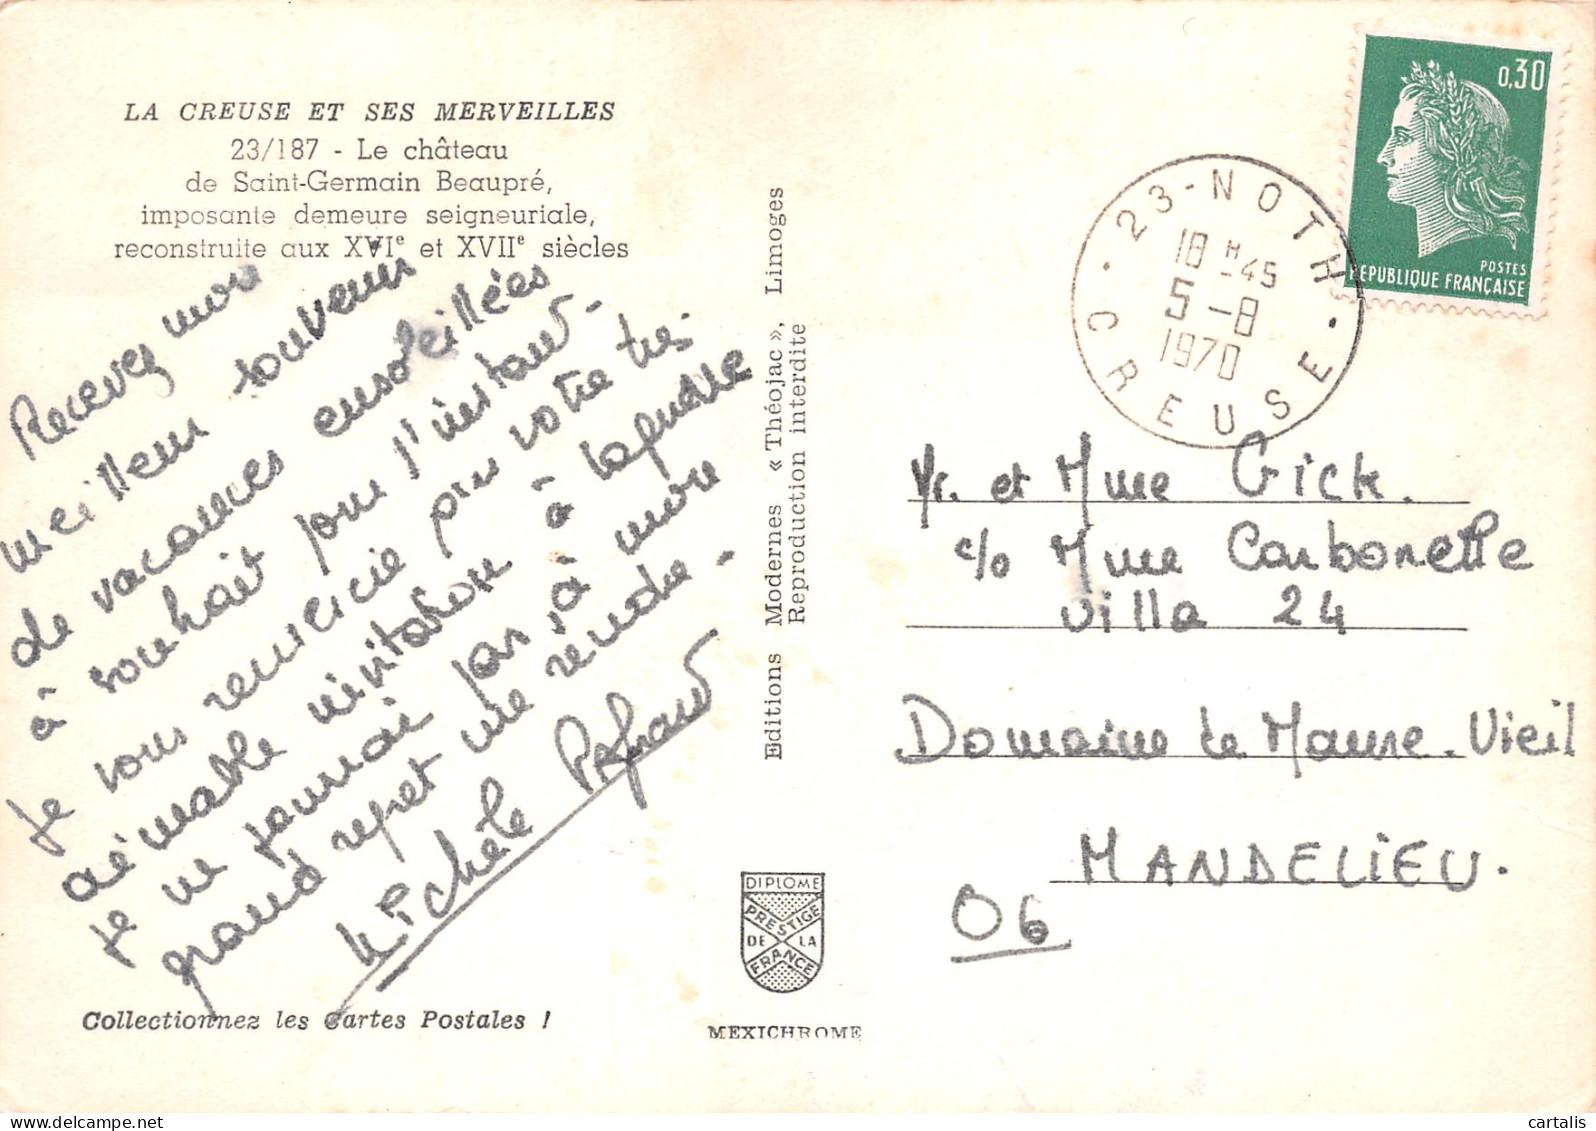 LA CREUSE ET SES MERVEILLES
23/187 - Le château
de Saint-Germain Beaupré,
imposante demeure seigneuriale,
reconstruite aux XVIe et XVIIe siècles
Recevez mon
meilleur souvenir
de vacances ensoleillées
à souhait pour l'instant.
Je vous remercie pour votre très
aimable invitation à laquelle
je ne pourrai pas, à mon
grand regret me rendre.
Michèle
Collectionnez les Cartes Postales !
Editions Modernes « Théojac », Limoges
Reproduction interdite
DIPLOME
PRESTIGE
DE LA
FRANCE
MEXICHROME
0,30
POSTES
REPUBLIQUE FRANÇAISE
23-NOTH
18 H-45
5-8
1970
CREUSE
Mr. et Mme Gick.
c/o Mme Carbonelle
Villa 24
Domaine de Maure-Vieil
MANDELIEU.
06
cartalis